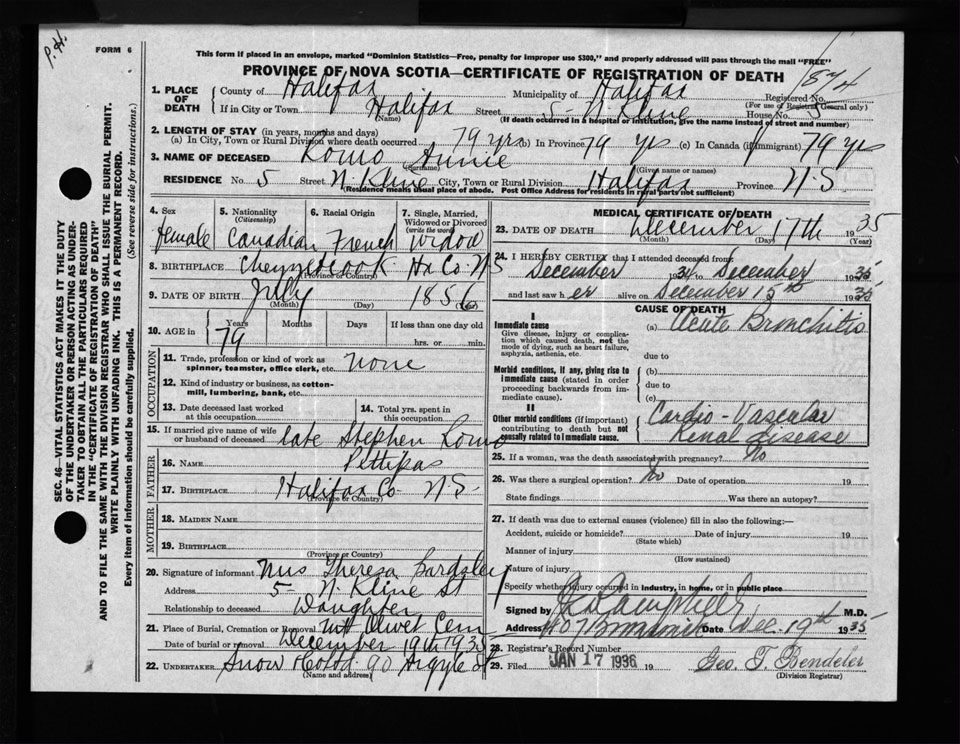 P. H.
FORM 6
This form if placed in an envelope, marked "Dominion Statistics—Free, penalty for improper use $300," and properly addressed will pass through the mail "FREE"
PROVINCE OF NOVA SCOTIA—CERTIFICATE OF REGISTRATION OF DEATH
1874
SEC. 46—VITAL STATISTICS ACT MAKES IT THE DUTY
OF THE UNDERTAKER OR PERSON ACTING AS UNDER-
TAKER TO OBTAIN ALL THE PARTICULARS REQUIRED
IN THE "CERTIFICATE OF REGISTRATION OF DEATH"
AND TO FILE THE SAME WITH THE DIVISION REGISTRAR WHO SHALL ISSUE THE BURIAL PERMIT.
WRITE PLAINLY WITH UNFADING INK. THIS IS A PERMANENT RECORD.
Every item of information should be carefully supplied. (See reverse side for instructions.)
1. PLACE OF DEATH
County of Halifax Municipality of Halifax Registered No.
(For use of Registrar General only)
If in City or Town Halifax Street 5- N. Kline House No. 5
(Name) (If death occurred in a hospital or institution, give the name instead of street and number)
2. LENGTH OF STAY (in years, months and days)
(a) In City, Town or Rural Division where death occurred 79 yrs (b) In Province 79 yrs (c) In Canada (if immigrant) 79 yrs
3. NAME OF DECEASED Romo Annie
(Surname) (Given name or names)
RESIDENCE No. 5 Street N. Kline City, Town or Rural Division Halifax Province N.S
(Residence means usual place of abode. Post Office Address for residents in rural parts not sufficient)
4. Sex
female
5. Nationality
(Citizenship)
Canadian
6. Racial Origin
French
7. Single, Married,
Widowed or Divorced
(write the word)
Widow
8. BIRTHPLACE Chezzetcook Hx Co NS
(Province or Country)
9. DATE OF BIRTH July 1856
(Month) (Day)
10. AGE in
Years Months Days If less than one day old
79 hrs. or min.
OCCUPATION
11. Trade, profession or kind of work as
spinner, teamster, office clerk, etc. none
12. Kind of industry or business, as cotton-
mill, lumbering, bank, etc.
13. Date deceased last worked
at this occupation
14. Total yrs. spent in
this occupation
15. If married give name of wife
or husband of deceased late Stephen Romo
FATHER
16. NAME Pettipas
17. BIRTHPLACE Halifax Co N.S-
(Province or Country)
MOTHER
18. MAIDEN NAME
19. BIRTHPLACE
(Province or Country)
20. Signature of informant Mrs Theresa Bardsley
Address 5- N. Kline St
Relationship to deceased Daughter
21. Place of Burial, Cremation or Removal Mt Olivet Cem
Date of burial or removal December 19th 1935
22. UNDERTAKER Snow & Co Ltd. 90 Argyle St
(Name and address)
MEDICAL CERTIFICATE OF DEATH
23. DATE OF DEATH December 17th 1935
(Month) (Day) (Year)
24. I HEREBY CERTIFY that I attended deceased from
December 34 to December 1935
and last saw her alive on December 15th 1935
CAUSE OF DEATH
I
Immediate cause
Give disease, injury or complica-
tion which caused death, not the
mode of dying, such as heart failure,
asphyxia, asthenia, etc.
(a) Acute Bronchitis
due to
Morbid conditions, if any, giving rise to
immediate cause (stated in order
proceeding backwards from im-
mediate cause).
(b)
due to
(c)
II
Other morbid conditions (if important)
contributing to death but not
causally related to immediate cause.
Cardio-Vascular
Renal disease
25. If a woman, was the death associated with pregnancy? No
26. Was there a surgical operation? No Date of operation 19
State findings Was there an autopsy?
27. If death was due to external causes (violence) fill in also the following:
Accident, suicide or homicide? Date of injury 19
(State which)
Manner of injury
(How sustained)
Nature of injury
Specify whether injury occurred in industry, in home, or in public place
Signed by Campbell M.D.
Address 407 Brunswick Date Dec. 19th 1935
28. Registrar's Record Number
29. Filed JAN 17 1936 19 Geo. T. Bendeler
(Division Registrar)